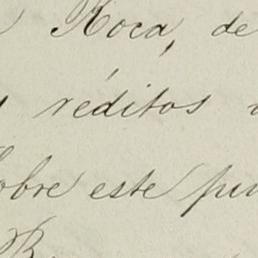 Roca, de
réditos
sobre este